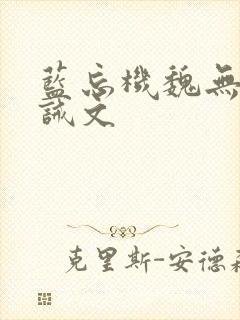 藍忘機魏無
誡文
克里斯-安德森